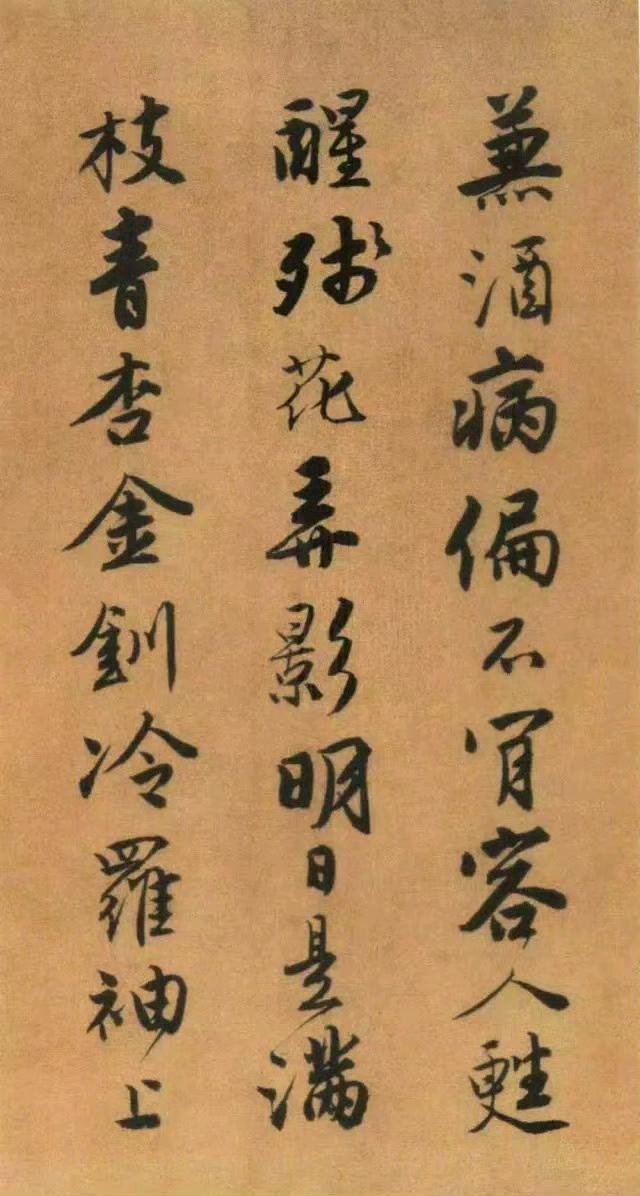 蒹酒病偏不肎容人甦
醒殘花弄影明日是滿
枝青杏金釧冷羅袖上